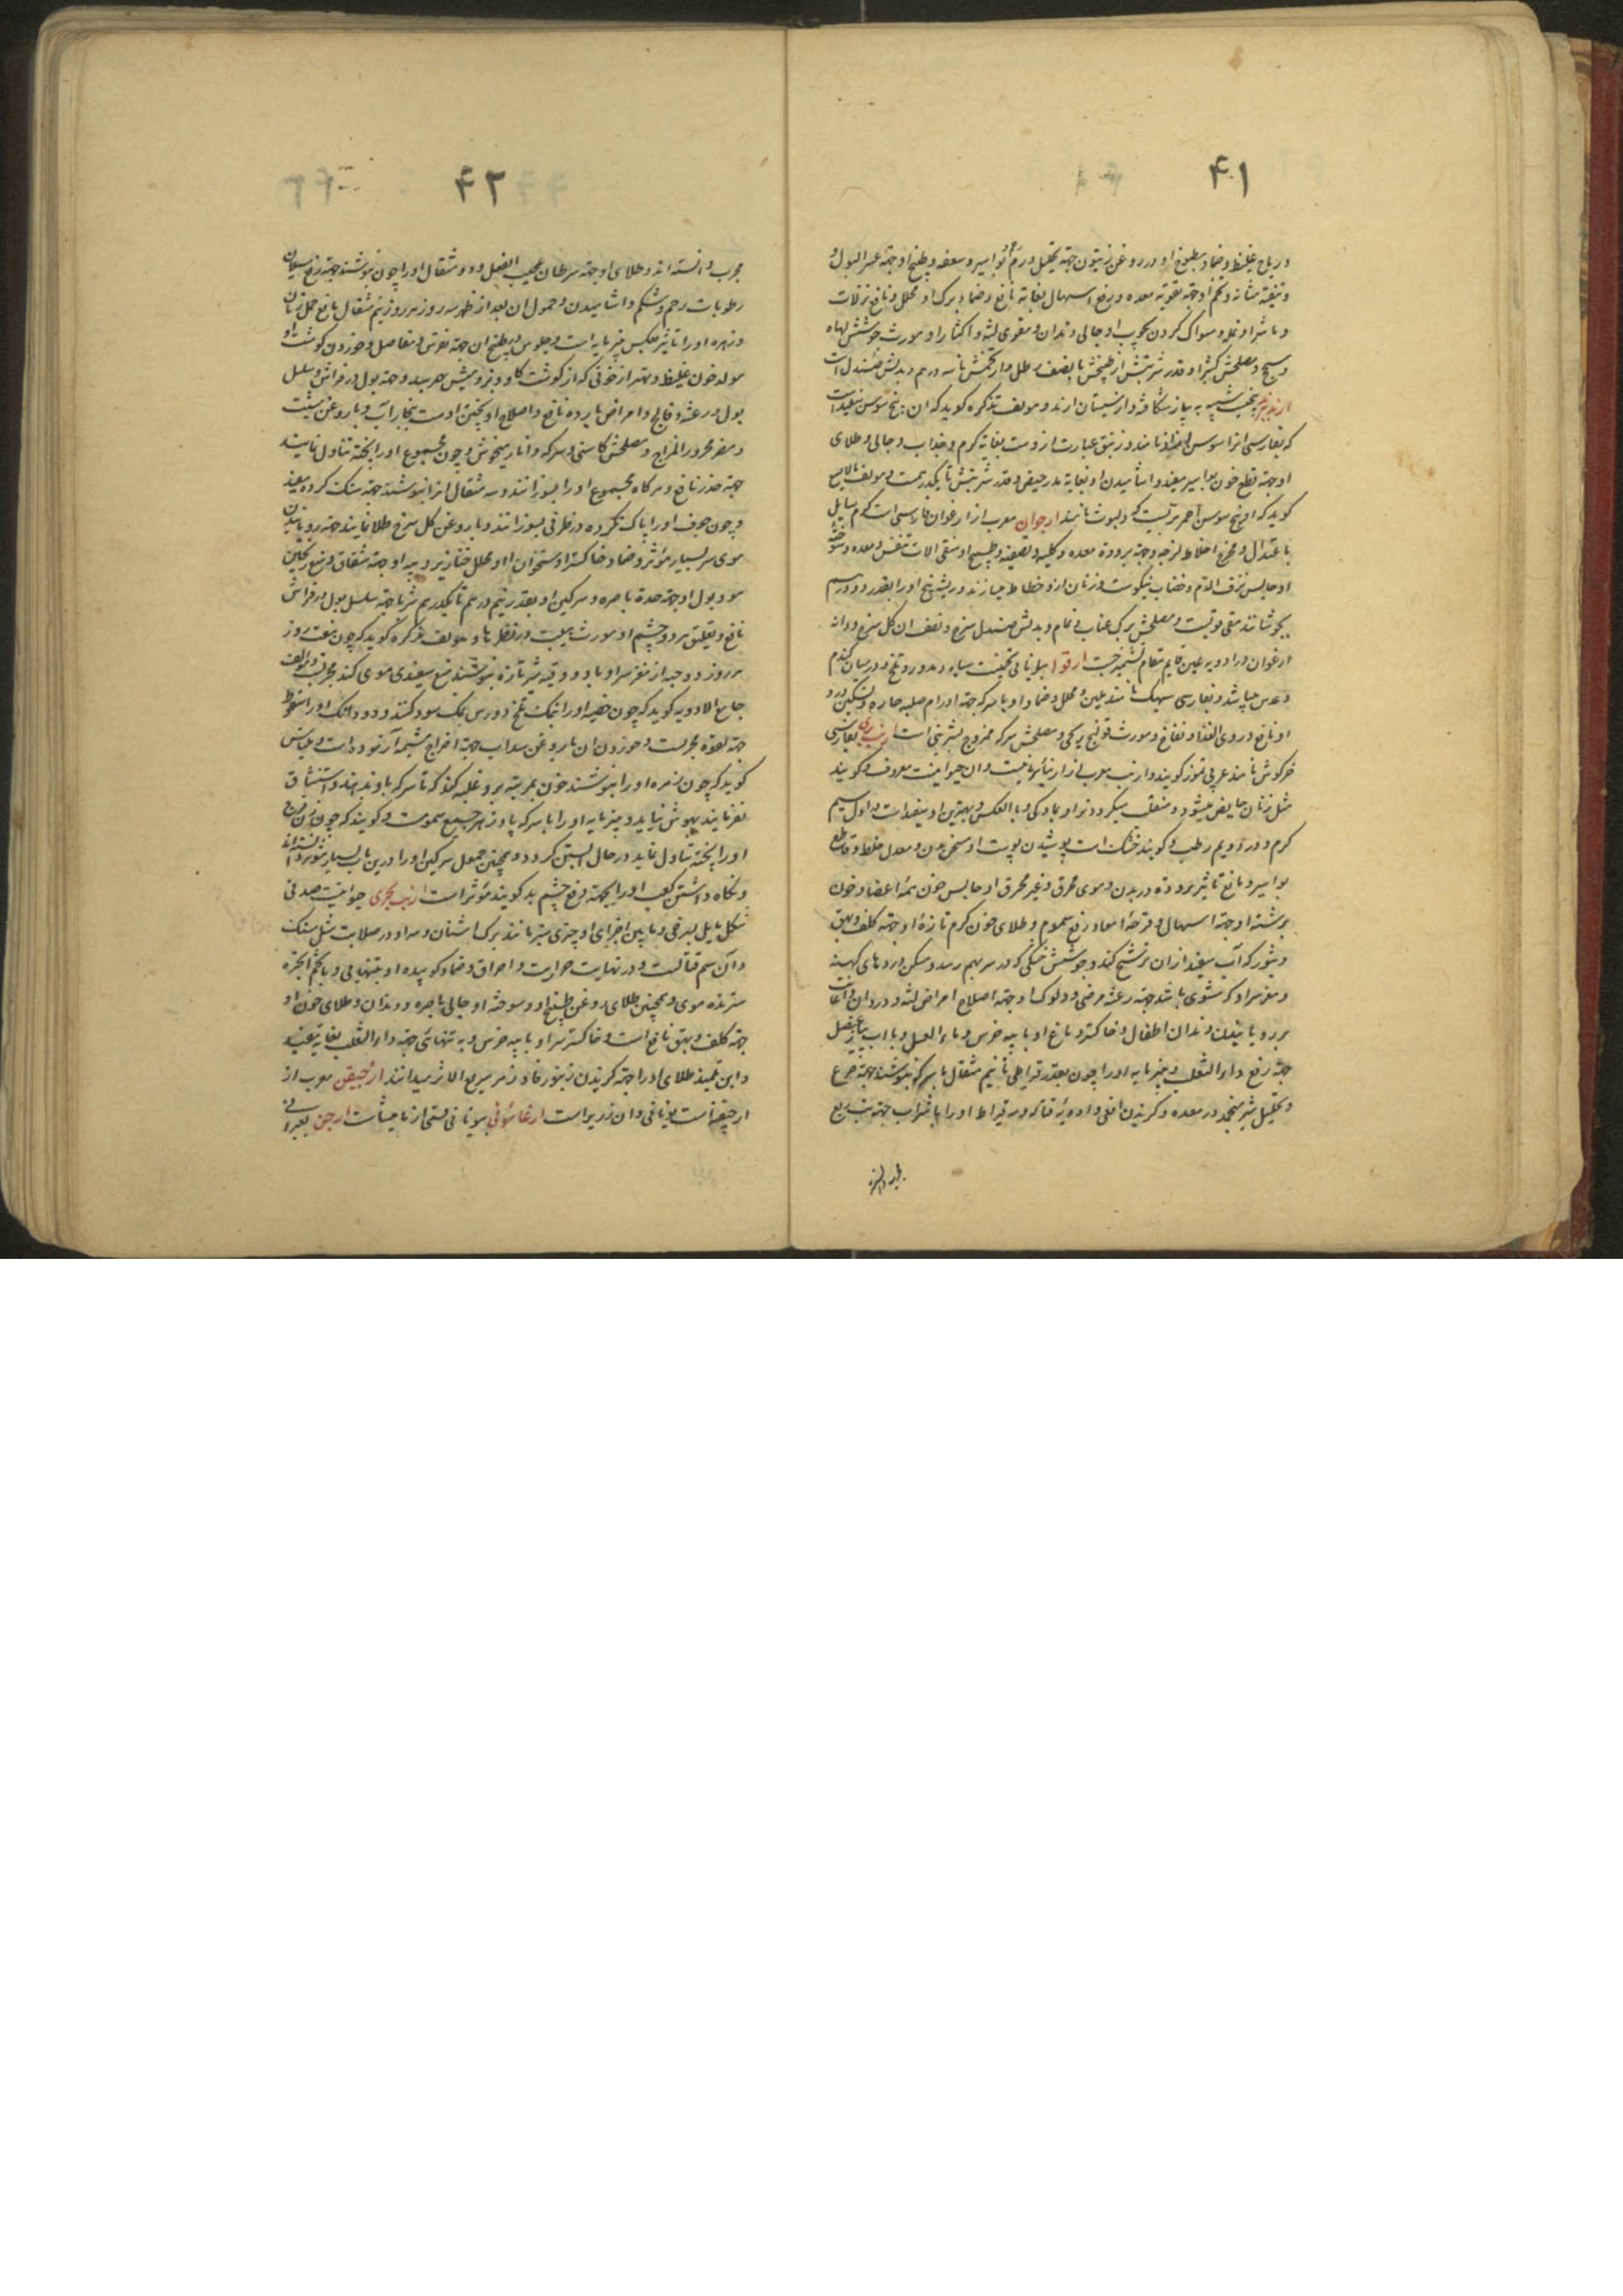 ۴۱
و ریاح غلیظ و ضماد مطبوخ او در روغن زیتون جهة تحلیل ورم بواسیر و مقعد و طبیخ او جهة عسر البول و
و تنقیه مثانه و تخم او جهة تقویة معده و رفع اسهال بغایة نافع و ضماد برک او محلل و نافع نزلات
و مسواک کردن بچوب او جالی دندان و مقوی لثه و اکثار او مورث جوشش لهاة
و مصلحش کتیرا و قدر شربتش از طبیخش تا نصف رطل و از تخمش تا سه درهم و بدلش صندل است
شبیه به پیاز شکافته و از سیستان آرند و مولف تذکره کوید که آن بیخ سوسن سفید است
که بفارسی آنرا سوسن نامند و زنبق عبارت ازوست بغایة کرم و جذاب و جالی و طلای
او جهة قطع خون بواسیر مفید و آشامیدن او بغایة مدر حیض و قدر شربتش تا یکدرهم است و مولف مالایسع
کوید که او بیخ سوسن احمر نامند ارجوان معرب از ارغوان فارسی است کرم مایل
باعتدال و مخرج اخلاط لزجه و جهة برودة معده و کلیه و تصفیه و طبیخ او منقی آلات تنفس و معده و سوخته
او حابس نزف الدم و خضاب نیکوست و زنان ازو خطاط میسازند و ریشه بیخ او را بقدر دو درم
بجوشانند مقی قویست و مصلحش برک عناب و بدلش صندل سرخ و نصف آن کل سرخ و دانه
ارغوان در ادویه عین قایم مقام تشمیزجست ارقوا بیونانی تخمیست سیاه و مدور و تلخ و در میان کندم
و عدس میباشد و بفارسی سیهک نامند ملین و محلل و ضماد او با سرکه جهة اورام صلبه حاره و تسکین درد
او نافع و ردی الغذا و نفاخ و مورث قولنج ریحی و مصلحش سرکه ممزوج بشیرینی است ارنب بری بفارسی
خرکوش نامند و ارنب معرب از آن حیوانیست معروف و کویند
مثل زنان حایض میشود و منقلب میکردد نر او بمادکی و بالعکس و بهترین او سفید است در اول سیم
کرم و در دویم رطب و کویند خشک است پوشیدن پوست او مسخن بدن و معدل خلط و قاطع
بواسیر و مانع تاثیر برودة در بدن و موی محرق و غیر محرق او حابس خون همه اعضا و خون
برشته او جهة اسهال و قرحه امعا و رفع سموم و طلای خون کرم تازه او جهة کلف و بهق
و بثور که آب سفید از آن ترشح کند و جوشش خشکی که در سر بهم رسد و مسکن دردهای کهنه
و مغز سر او که مشوی باشد جهة رعشه مرضی و دلوک او جهة اصلاح امراض لثه و درد آن و اعانت
بر رویانیدن دندان اطفال و خاکستر دماغ او با پیه خرس و ماء العسل و با آب پیاز عنصل
جهة رفع داء الثعلب و پنیر مایه او را چون بقدر قیراطی تا نیم مثقال با سرکه بنوشند جهة صرع
و تحلیل شیر منجمد در معده و کزیدن افعی و ادویه قتاله و سه قیراط او را با شراب جهة تب ربع
۴۲
مجرب دانسته اند و طلای او جهة سرطان عجیب الفعل و دو مثقال او را چون بنوشند جهة رفع سیلان
رطوبات رحم و شکم و آشامیدن و حمول آن بعد از طهر سه روز هر روز نیم مثقال مانع حمل زنان
و زهره او را تاثیر بعکس پنیر مایه است و جلوس در طبیخ آن جهة نقرس و مفاصل و خوردن کوشت او
مولد خون غلیظ و بهتر از خونی که از کوشت کاو و بز و میش بهم رسد و جهة بول در فراش و سلس
بول و رعشه و فالج و امراض بارده نافع و اصلاح او پختن اوست ببخار آب و با روغن شبت
و مضر محرور المزاج و مصلحش کاسنی و سرکه و انار میخوش و چون مجموع او را پخته تناول نمایند
جهة خدر نافع و هرکاه مجموع او را بسوزانند و سه مثقال از آن بنوشند جهة سنک کرده مفید
و چون جوف او را پاک نکرده در ظرفی بسوزانند و با روغن کل سرخ طلا نمایند جهة رویانیدن
موی سر بسیار مؤثر و ضماد خاکستر استخوان او محلل خنازیر و پیه او جهة شقاق و منع ریختن
مو و بول او جهة حدة باصره و سرکین او بقدر نیم درهم تا یکدرهم شربا جهة سلس بول در فراش
نافع و تعلیق هر دو چشم او مورث هیبت در نظرها و مولف تذکره کوید که چون هفت روز
هر روز دو حبه از مغز سر او با دو وقیه شیر تازه بنوشند منع سفیدی موی کند مجربست و مولف
جامع الادویه کوید که چون خصیه او را بنمک تلخ و ورس نمک سود کنند و دو دانک او را سعوط
جهة لقوه مجربست و خوردن آن با روغن سداب جهة اخراج مشیمه آزموده است و جالینوس
کوید که چون زهره او را بنوشند خون بمرتبه برو غلبه کند که تا سرکه باو ندهند و استنشاق
نفرمایند بهوش نیاید و پنیر مایه او را با سرکه پادزهر جمیع سموم است و کویند که چون زن فرج
او را پخته تناول نماید در حال آبستن کردد و همچنین حمول سرکین او را درین باب بسیار مؤثر دانسته اند
و نکاه داشتن کعب او را بجهة دفع چشم بد کویند مؤثر است ارنب بحری حیوانیست صدفی
شکل مایل بسرخی و مابین اجزای او چیزی سبز مانند برک اشنان و سر او در صلابت مثل سنک
و آن سم قتالست و در نهایت حرارت و احراق و ضماد کوبیده او بتنهایی و با تخم انجره
سترنده موی و همچنین طلای روغن طبیخ او و سوخته او جالی باصره و دندان و طلای خون او
جهة کلف و بهق نافع است و خاکستر سر او با پیه خرس و به تنهائی جهة داء الثعلب بغایة مفید
و ابن تلمیذ طلای او را جهة کزیدن زنبور فادزهر سریع الاثر میدانند ارجیقن معرب از
ارجیقنا است یونانی و آن زریر است ارغامونی بیونانی قسمی از مامیثا است ارجن